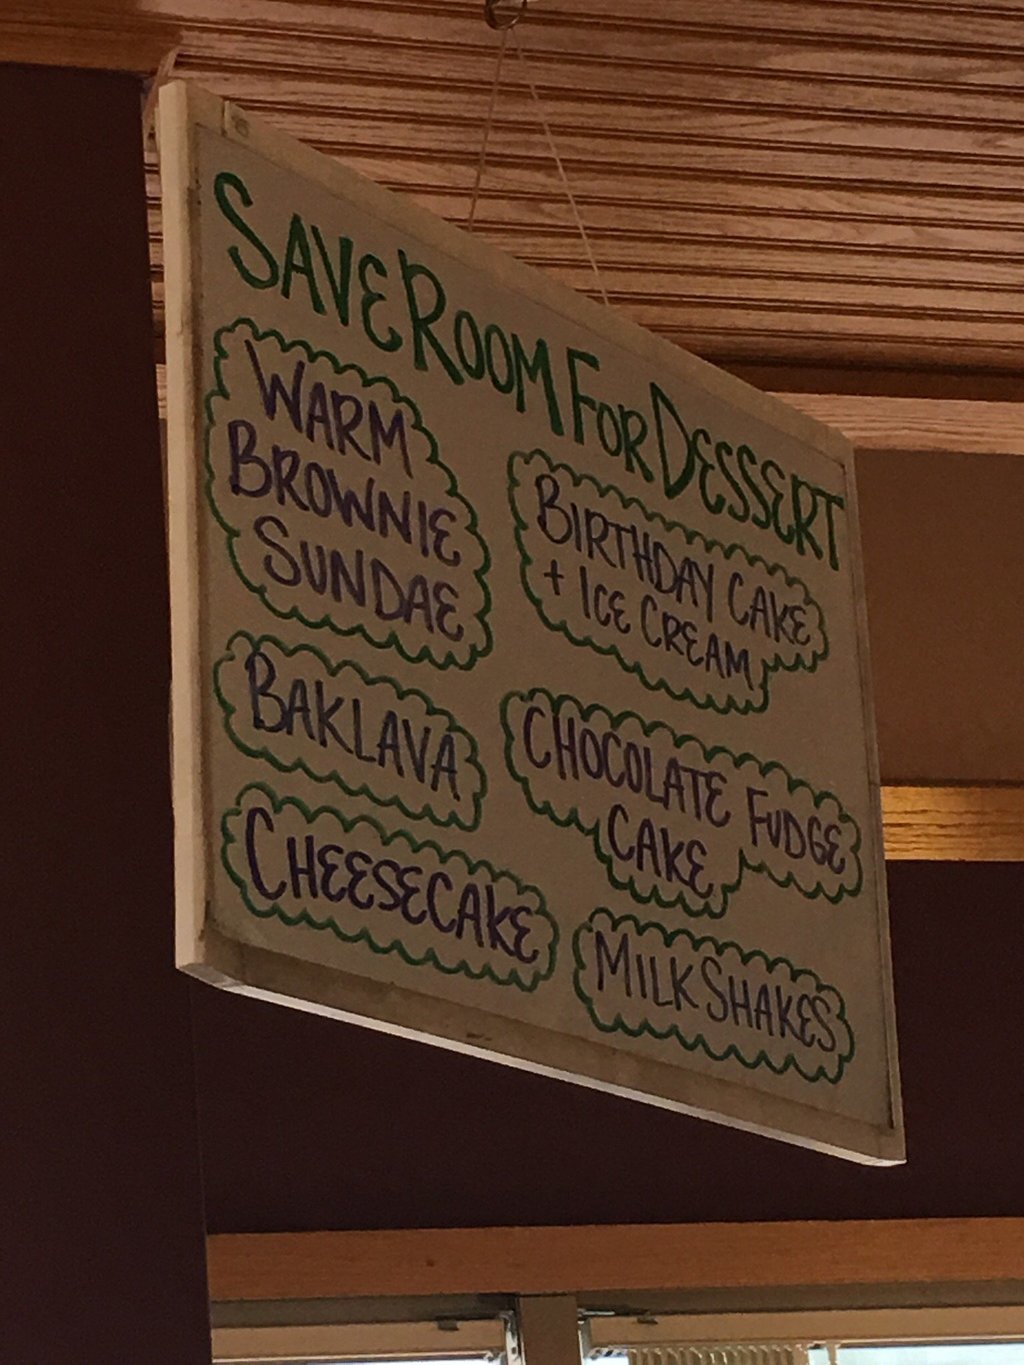 SAVE ROOM FOR DESSERT
WARM
BROWNIE
SUNDAE
BAKLAVA
CHEESECAKE
BIRTHDAY CAKE
+ ICE CREAM
CHOCOLATE FUDGE
CAKE
MILKSHAKES